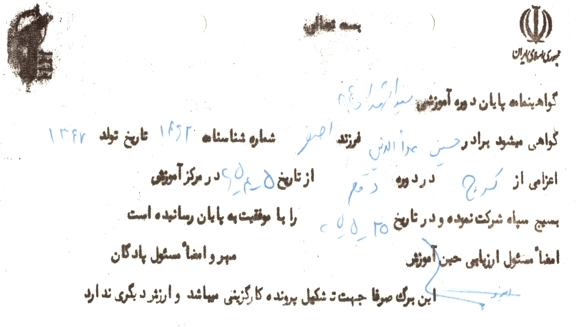 بسمه تعالی
جمهوری اسلامی ایران
گواهینامه پایان دوره آموزشی سیدالشهداء
گواهی میشود برادر حسین فرزند اصغر شماره شناسنامه ۱۸۶۲ تاریخ تولد ۱۳۴۷
اعزامی از کرج در دوره از تاریخ در مرکز آموزشی
بسیج سپاه شرکت نموده و در تاریخ را با موفقیت به پایان رسانیده است
امضاً مسئول ارزیابی حین آموزش مهر و امضاً مسئول پادگان
این برگ صرفا جهت تشکیل پرونده کارگزینی میباشد و ارزش دیگری ندارد